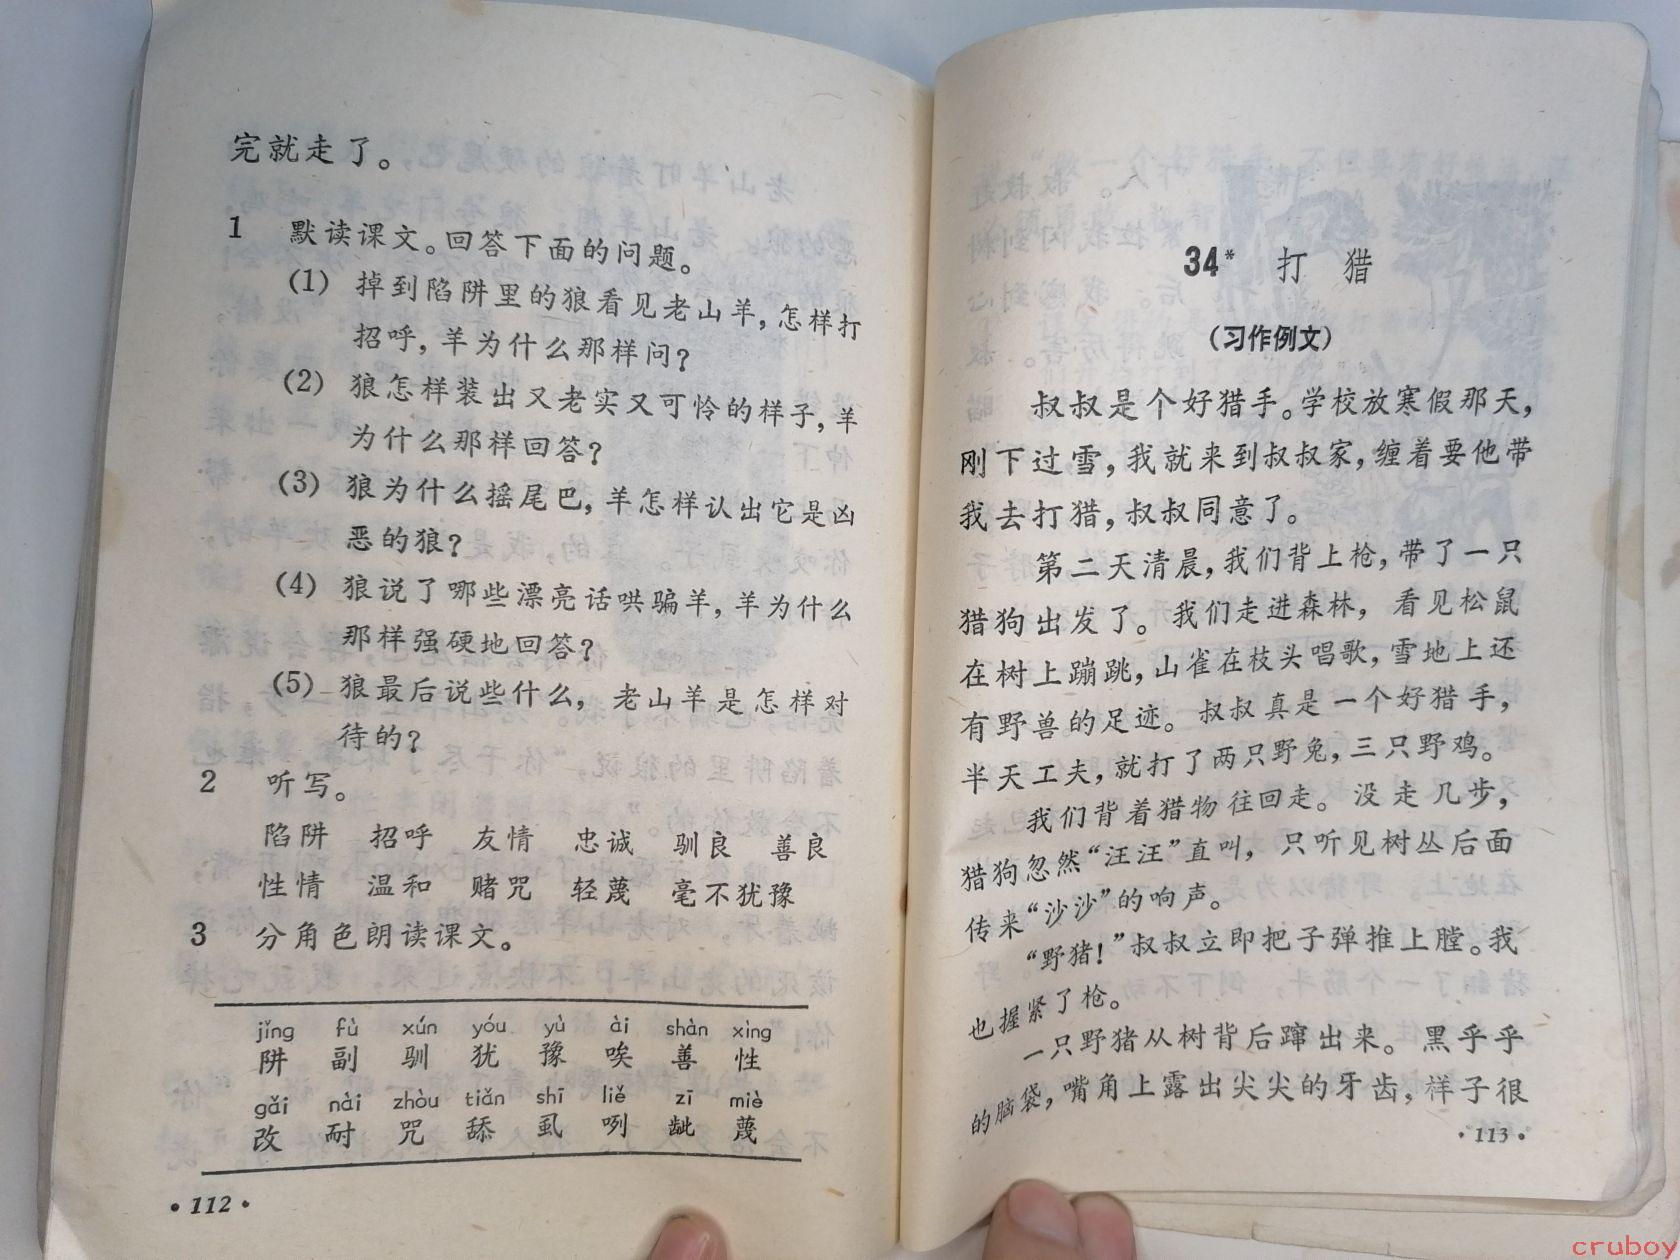 完就走了。
1 默读课文。回答下面的问题。
(1) 掉到陷阱里的狼看见老山羊，怎样打
招呼，羊为什么那样问？
(2) 狼怎样装出又老实又可怜的样子，羊
为什么那样回答？
(3) 狼为什么摇尾巴，羊怎样认出它是凶
恶的狼？
(4) 狼说了哪些漂亮话哄骗羊，羊为什么
那样强硬地回答？
(5) 狼最后说些什么，老山羊是怎样对
待的？
2 听写。
陷阱 招呼 友情 忠诚 驯良 善良
性情 温和 赌咒 轻蔑 毫不犹豫
3 分角色朗读课文。
jǐng fù xún yóu yù ài shàn xìng
阱 副 驯 犹 豫 唉 善 性
gǎi nài zhòu tiǎn shī liě zī miè
改 耐 咒 舔 虱 咧 龇 蔑
·112·
34* 打 猎
(习作例文)
叔叔是个好猎手。学校放寒假那天，
刚下过雪，我就来到叔叔家，缠着要他带
我去打猎，叔叔同意了。
第二天清晨，我们背上枪，带了一只
猎狗出发了。我们走进森林，看见松鼠
在树上蹦跳，山雀在枝头唱歌，雪地上还
有野兽的足迹。叔叔真是一个好猎手，
半天工夫，就打了两只野兔，三只野鸡。
我们背着猎物往回走。没走几步，
猎狗忽然“汪汪”直叫，只听见树丛后面
传来“沙沙”的响声。
“野猪！”叔叔立即把子弹推上膛。我
也握紧了枪。
一只野猪从树背后蹿出来。黑乎乎
的脑袋，嘴角上露出尖尖的牙齿，样子很
·113·
cruboy